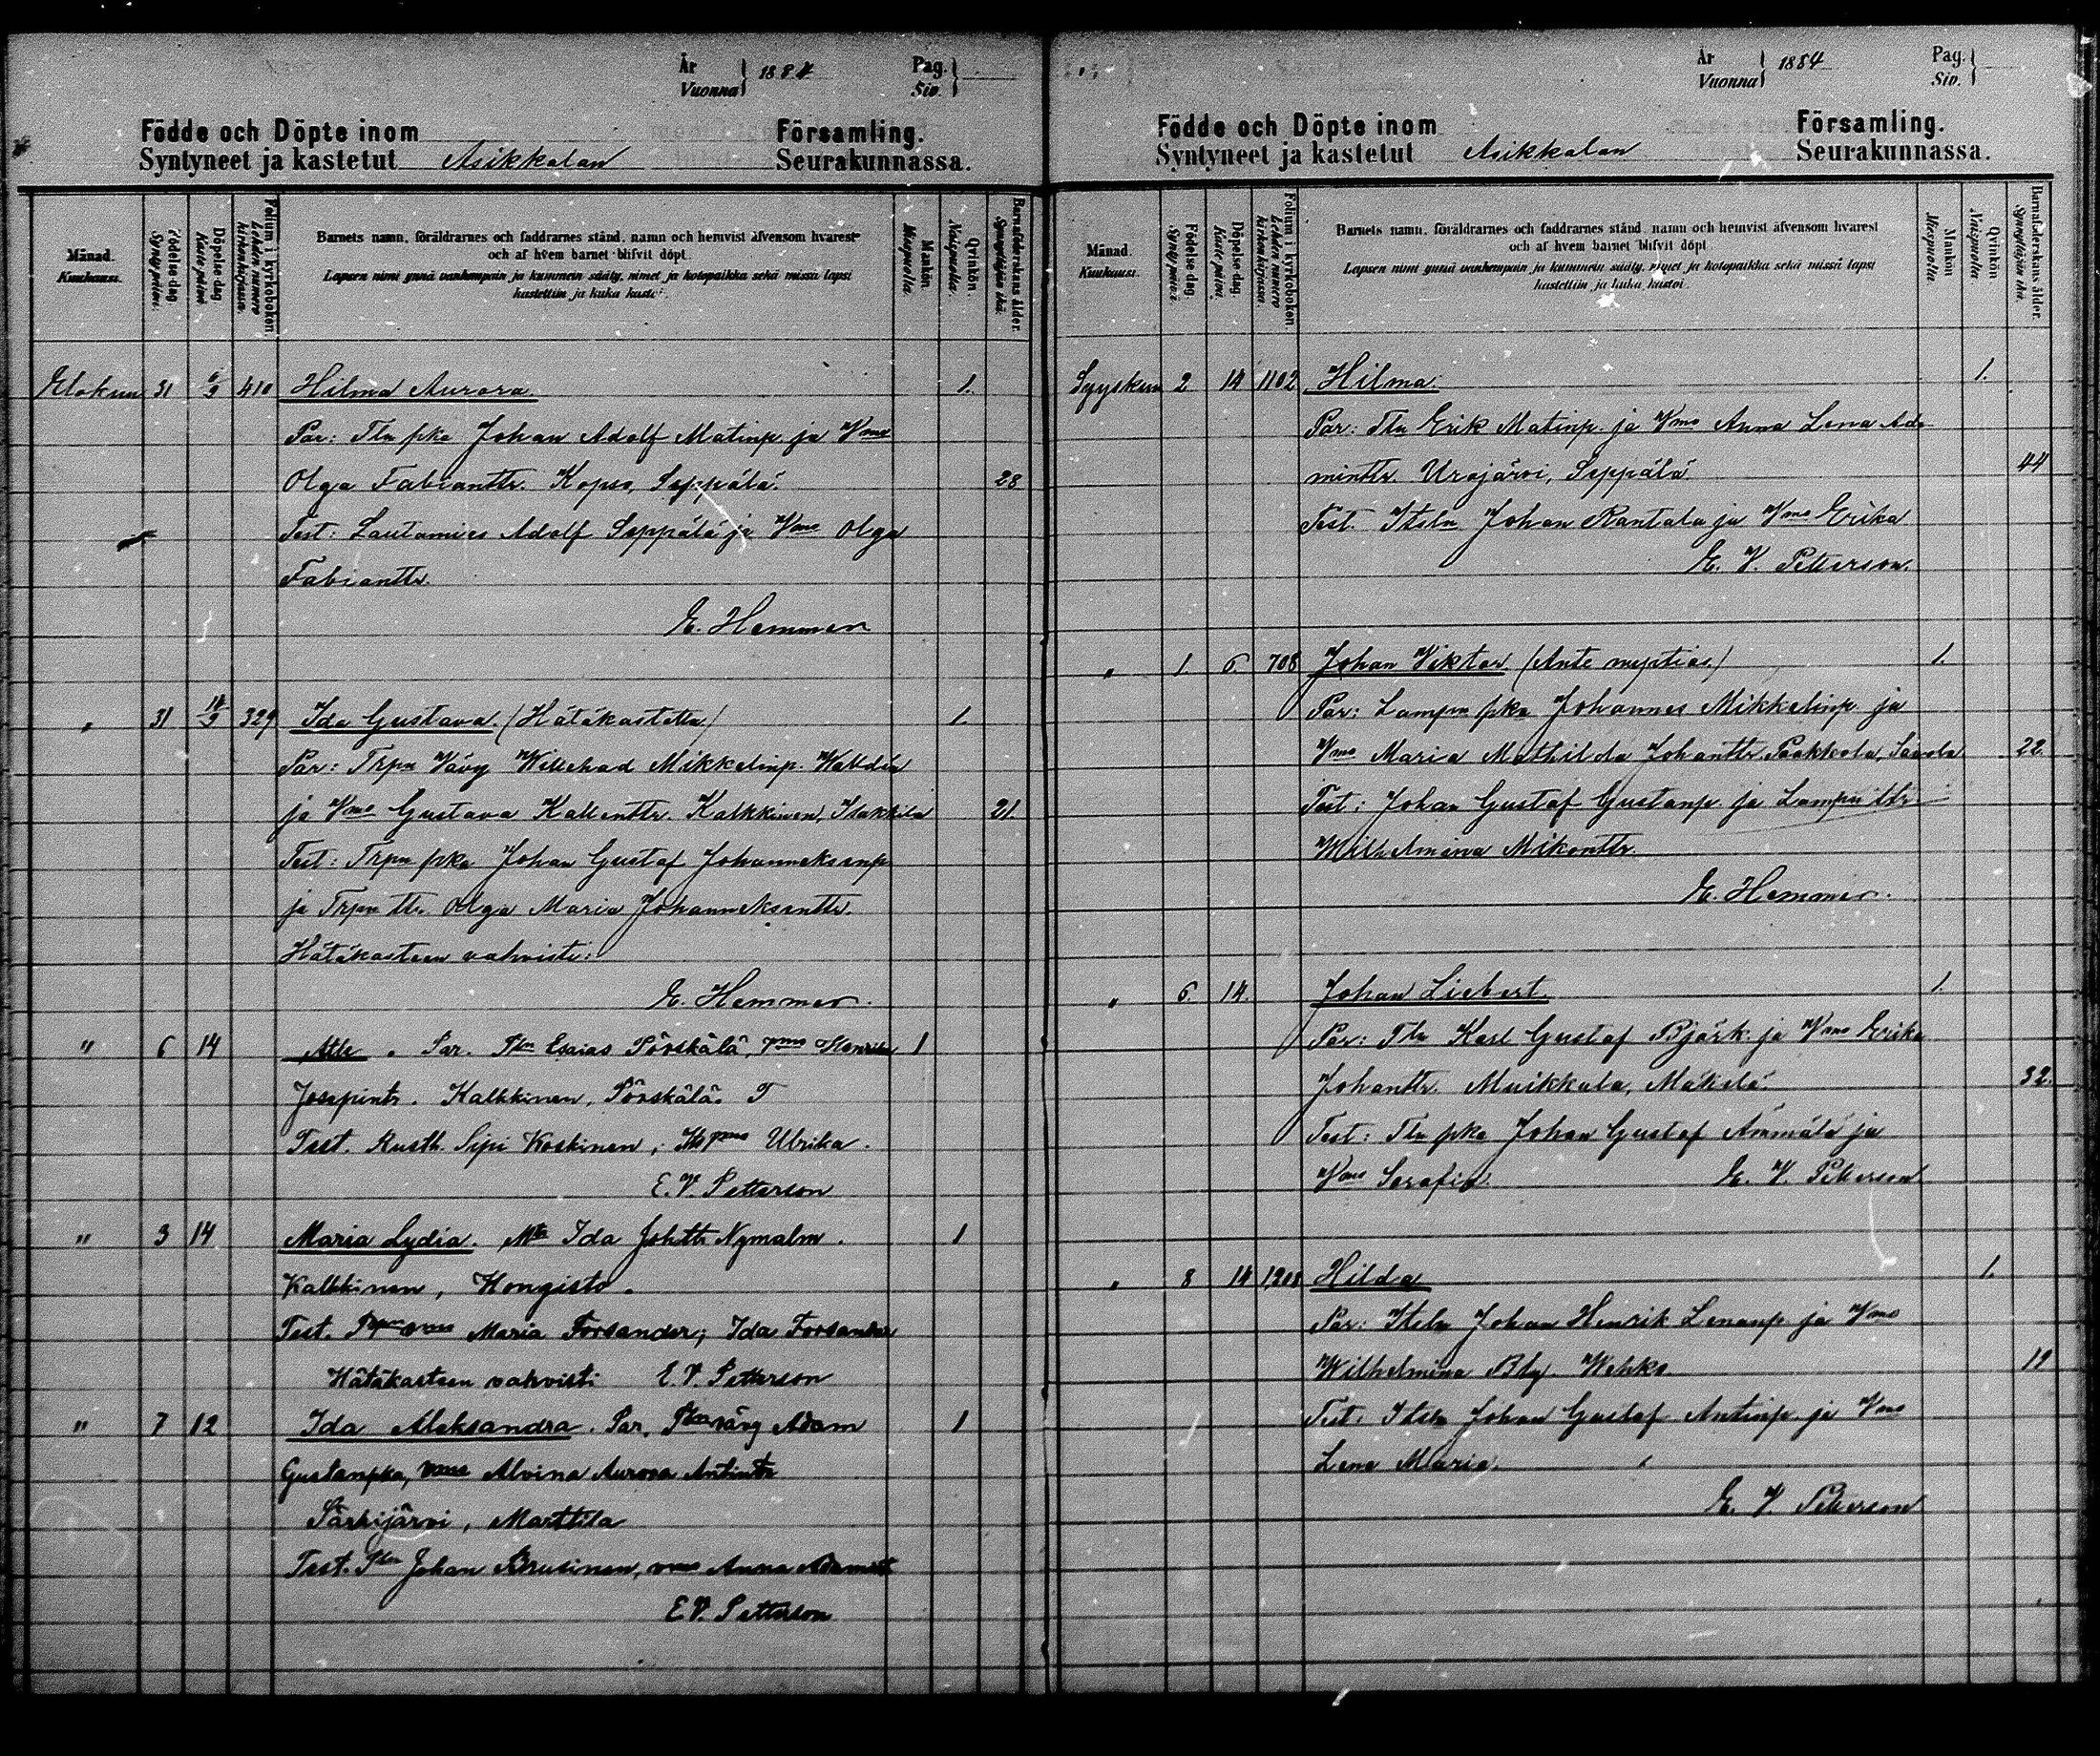 År
Vuonna } 1884
Pag.
Siv. }
Födde och Döpte inom Församling.
Syntyneet ja kastetut Asikkalan Seurakunnassa.
Månad.
Kuukausi.
Födelse dag.
Syntypäivä.
Döpelse dag.
Kaste päivä.
Folium i kyrkoboken.
Lehden numero kirkonkirjassa.
Barnets namn, föräldrarnes och faddrarnes stånd, namn och hemvist äfvensom hvarest
och af hvem barnet blifvit döpt.
Lapsen nimi ynnä vanhempain ja kummein sääty, nimet ja kotopaikka sekä missä lapsi
kastettiin ja kuka kastoi.
Mankön.
Miespuolia.
Qvinkön.
Naispuolia.
Barnaföderskans ålder.
Synnyttäjän ikä.
Elokuu 31 6/9 410 Hilma Aurora 1.
Par: Tln pka Johan Adolf Matinp. ja Vmo
Olga Fabianttr. Kopso, Seppälä. 28
Test: Lautamies Adolf Seppälä ja Vmo Olga
Fabianttr.
E. Hemmer
" 31 14/9 329 Ida Gustava. (Hätäkastettu) 1.
Par: Trpn Vävy Willehad Mikkelinp. Walldén
ja Vmo Gustava Kallenttr. Kalkkinen, 21.
Test: Trpn pka Johan Gustaf Johanneksenp
ja Trpn ttr. Olga Maria Johanneksenttr.
Hätäkasteen vahvisti:
E. Hemmer.
" 6 14 Atle. Par. Tln Esaias Pörskälä, vmo Henrika 1
Josepintr. Kalkkinen, Pörskälä.
Test. Rusth. Sipi Koskinen, vmo Ulrika.
E. V. Petterson
" 3 14 Maria Lydia. Ida Johttr Nymalm. 1
Kalkkinen, Hongisto.
Test. vmo Maria Forsander; Ida Forsander
Hätäkasteen vahvisti E. V. Petterson
" 7 12 Ida Aleksandra. Par. Tln vävy Adam 1
Gustanpka, vmo Alvina Aurora Antintr
Särkijärvi, Marttila
Test. Tln Johan Kruusinen, vmo Anna
E. V. Petterson
År
Vuonna } 1884
Pag.
Siv. }
Födde och Döpte inom Församling.
Syntyneet ja kastetut Asikkalan Seurakunnassa.
Månad.
Kuukausi.
Födelse dag.
Syntypäivä.
Döpelse dag.
Kaste päivä.
Folium i kyrkoboken.
Lehden numero kirkonkirjassa.
Barnets namn, föräldrarnes och faddrarnes stånd, namn och hemvist äfvensom hvarest
och af hvem barnet blifvit döpt.
Lapsen nimi ynnä vanhempain ja kummein sääty, nimet ja kotopaikka sekä missä lapsi
kastettiin ja kuka kastoi.
Mankön
Miespuolia
Qvinkön
Naispuolia
Barnaföderskans ålder.
Synnyttäjän ikä.
Syyskuu 2 14 1102 Hilma. 1.
Par: Tln Erik Matinp. ja Vmo Anna Lena Ada
minttr. Urajärvi, Seppälä 44
Test. Itsln Johan Rantala ja Vmo Erika
E. V. Petterson.
" 1. 6. 708 Johan Viktor. (Ante nuptias.) 1.
Par: Lampn pka Johannes Mikkelinp ja
Vmo Maria Mathilda Johanttr. Paakkola, 22.
Test: Johan Gustaf Gustanp. ja Lampn ttr
Wilhelmina Mikonttr.
E. Hemmer.
" 6. 14. Johan Liebert. 1.
Par: Tln Karl Gustaf Björk. ja Vmo Erika
Johanttr. Muikkula, Mäkelä. 32.
Test: Tln pka Johan Gustaf Ämmälä ja
Vmo Serafia E. V. Petterson
" 8 14 1208 Hilda 1.
Par: Itsln Johan Henrik Lenanp ja Vmo
Wilhelmina Bly. Wehko. 19
Test: Itsln Johan Gustaf Antinp. ja Vmo
Lena Maria.
E. V. Petterson